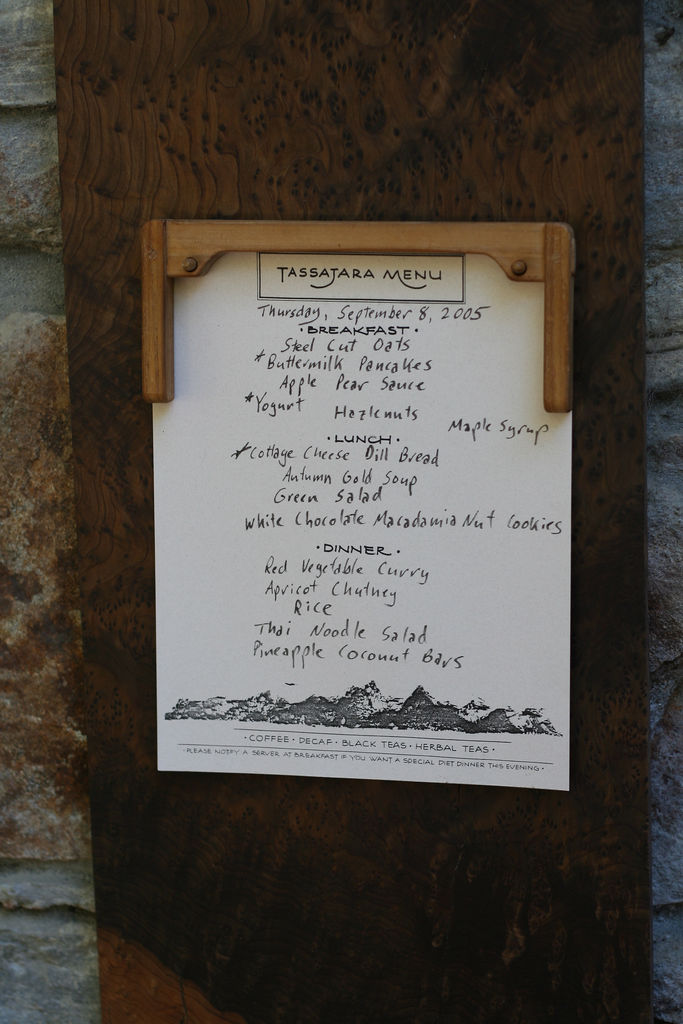 TASSAJARA MENU
Thursday, September 8, 2005
· BREAKFAST ·
Steel Cut Oats
*Buttermilk Pancakes
Apple Pear Sauce
*Yogurt Hazlenuts
Maple Syrup
· LUNCH ·
*Cottage Cheese Dill Bread
Autumn Gold Soup
Green Salad
White Chocolate Macadamia Nut Cookies
· DINNER ·
Red Vegetable Curry
Apricot Chutney
Rice
Thai Noodle Salad
Pineapple Coconut Bars
· COFFEE · DECAF · BLACK TEAS · HERBAL TEAS ·
· PLEASE NOTIFY A SERVER AT BREAKFAST IF YOU WANT A SPECIAL DIET DINNER THIS EVENING ·